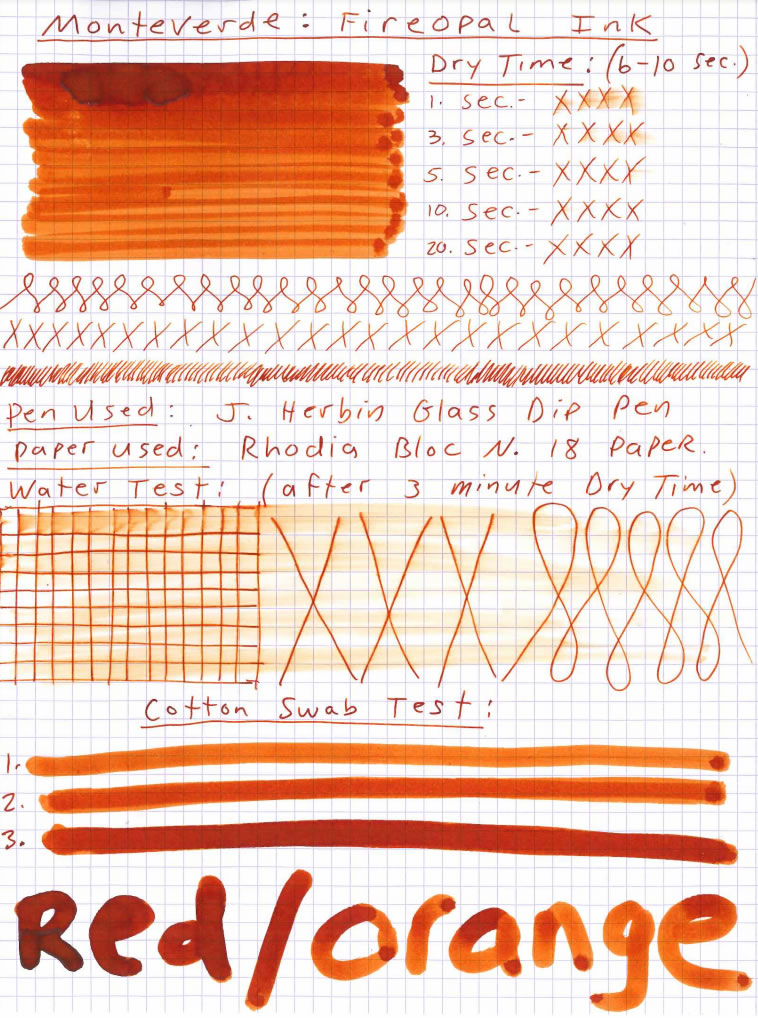 Monteverde: Fireopal Ink
Dry Time: (6-10 sec.)
1. sec.- X X X X
3. sec.- X X X X
5. sec.- X X X X
10. sec.- X X X X
20. sec.- X X X X
X X X X X X X X X X X X X X X X X X X X X X X X X X X
Pen Used: J. Herbin Glass Dip Pen
Paper used: Rhodia Bloc N. 18 Paper.
Water Test: (after 3 minute Dry Time)
X X X
Cotton Swab Test:
1.
2.
3.
Red/orange